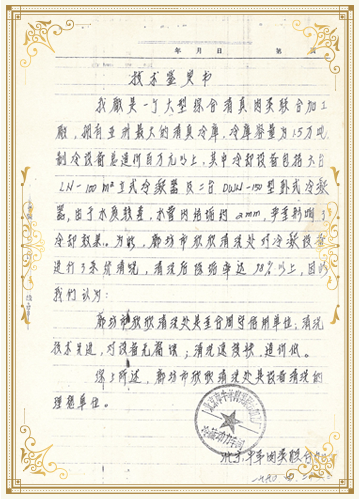 年 月 日 第
技术鉴定书
我厂是一个大型综合清真肉类联合加工
厂，拥有亚洲最大的清真冷库，冷库容量为1.5万吨，
制冷设备总造价百万元以上，其中冷却设备包括六台
LN-100m²立式冷凝器及二台DWN-150型卧式冷凝
器，由于水质较差，水管内结垢约2mm，严重影响了
冷却效果。为此，廊坊市欣欣清洗处对冷凝设备
进行了系统清洗，清洗后除垢率达98%以上，因此
我们认为：
廊坊市欣欣清洗处是重合同守信用单位，清洗
技术先进，对设备无腐蚀；清洗速度快，造价低。
综上所述，廊坊市欣欣清洗处是设备清洗的
理想单位。
动力车间
北京 肉类联合加工